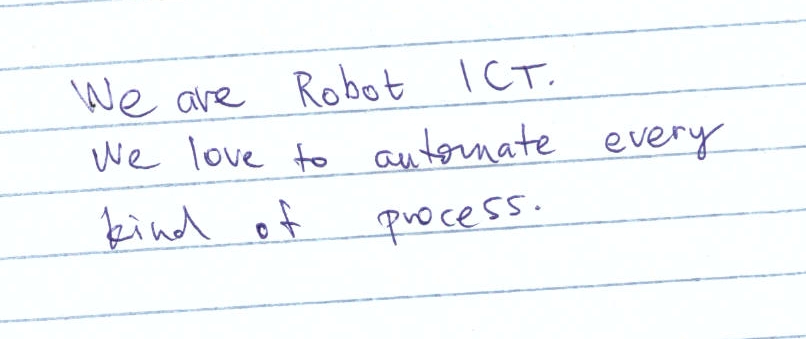 We are Robot ICT.
We love to automate every
kind of process.